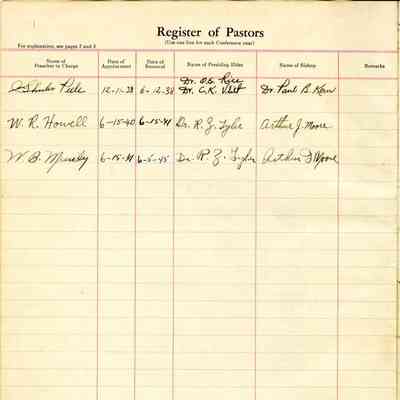 Register of Pastors
(Use one line for each Conference year)
For explanation, see pages 2 and 3
Name of Preacher in Charge Date of Appointment Date of Removal Name of Presiding Elder Name of Bishop Remarks
Dr. O.G. Rice
Peele 12-11-38 6-12-38 Dr. C.K. Dr. Paul B. Kern
W. R. Howell 6-15-40 6-15-41 Dr. R. Z. Tyler Arthur J. Moore
W. B. 6-15-41 6-5-45 Dr. R. Z. Tyler Arthur J Moore